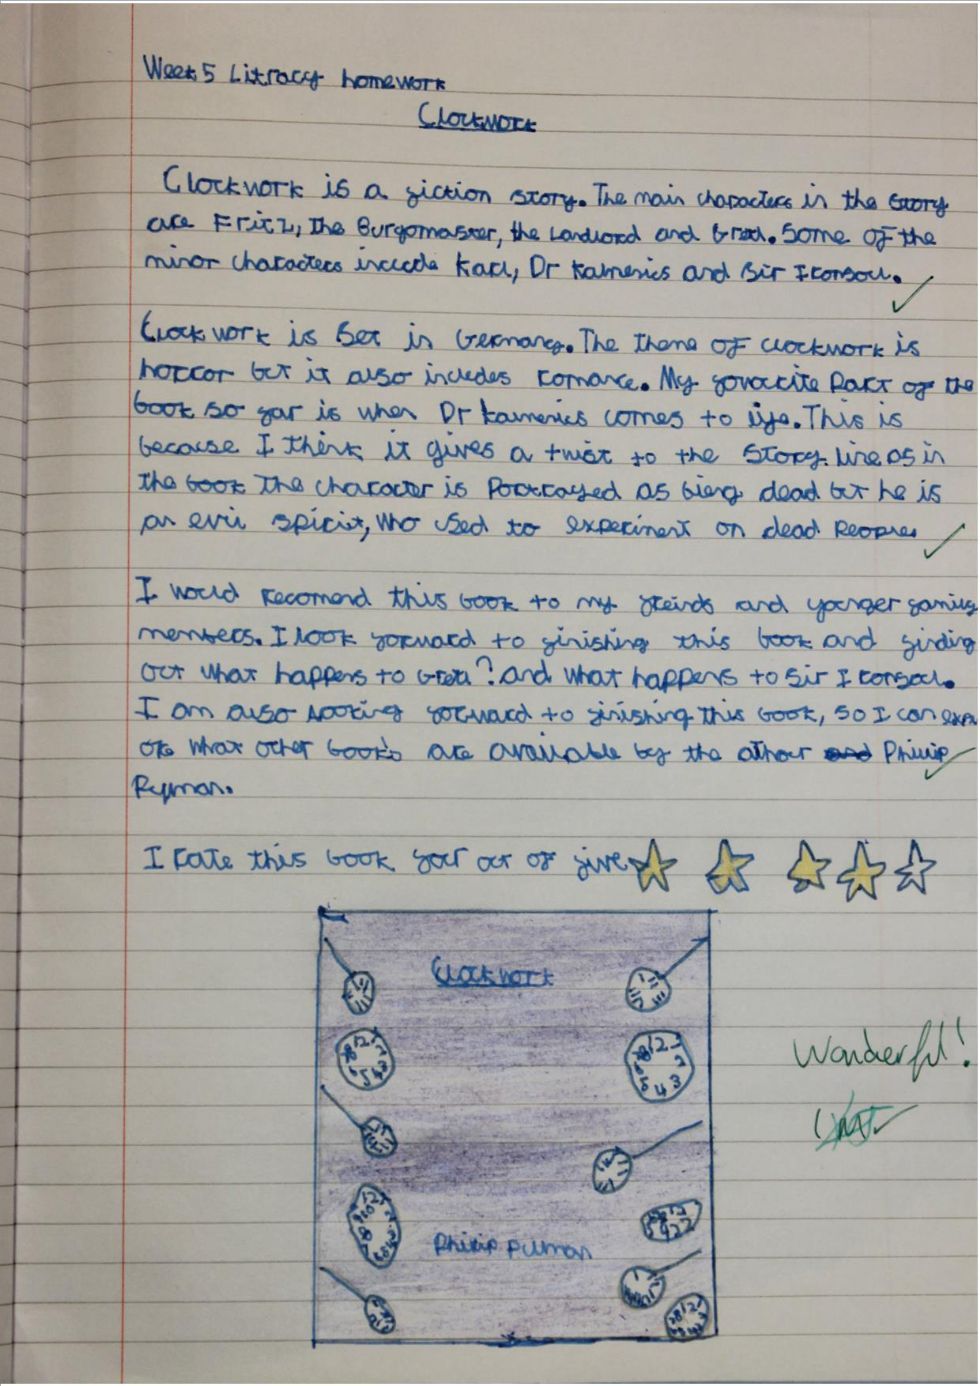 Week 5 Litracy homework
Clockwork
Clockwork is a fiction story. The main characters in the story
are Fritz, the Burgomaster, the Landlord and Gretl. Some of the
minor characters include Karl, Dr Kalmenius and Sir Ironsoul.
Clockwork is set in Germany. The theme of clockwork is
horror but it also includes romance. My favourite part of the
book so far is when Dr Kalmenius comes to life. This is
because I think it gives a twist to the story line as in
the book the character is portrayed as being dead but he is
an evil spirit, who used to experiment on dead people.
I would recomend this book to my freinds and younger family
members. I look forward to finishing this book and finding
out what happens to Gretl? and what happens to Sir Ironsoul.
I am also looking forward to finishing this book, so I can
what other books are available by the
Philip
I rate this book four out of five
Clockwork
Wonderful!
Philip Pulman